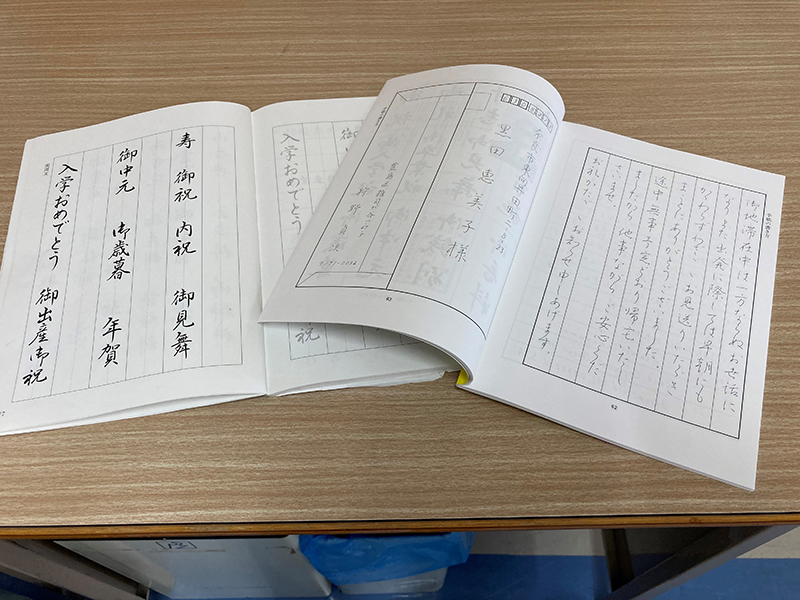 寿 御祝 内祝 御見舞
御中元 御歳暮 年賀
入学おめでとう 御出産御祝
入学おめでとう
祝
黒田恵美子様
63
手紙の書き方
御地滞在中は一方ならぬお世話に
なりまた出発に際しては早朝にも
かかわらずわざわざお見送りいただき
まことにありがとうございました
途中無事予定どおり帰宅いたし
ましたから他事ながらご安心くだ
さいませ
お礼かたがたお知らせ申しあげます
62